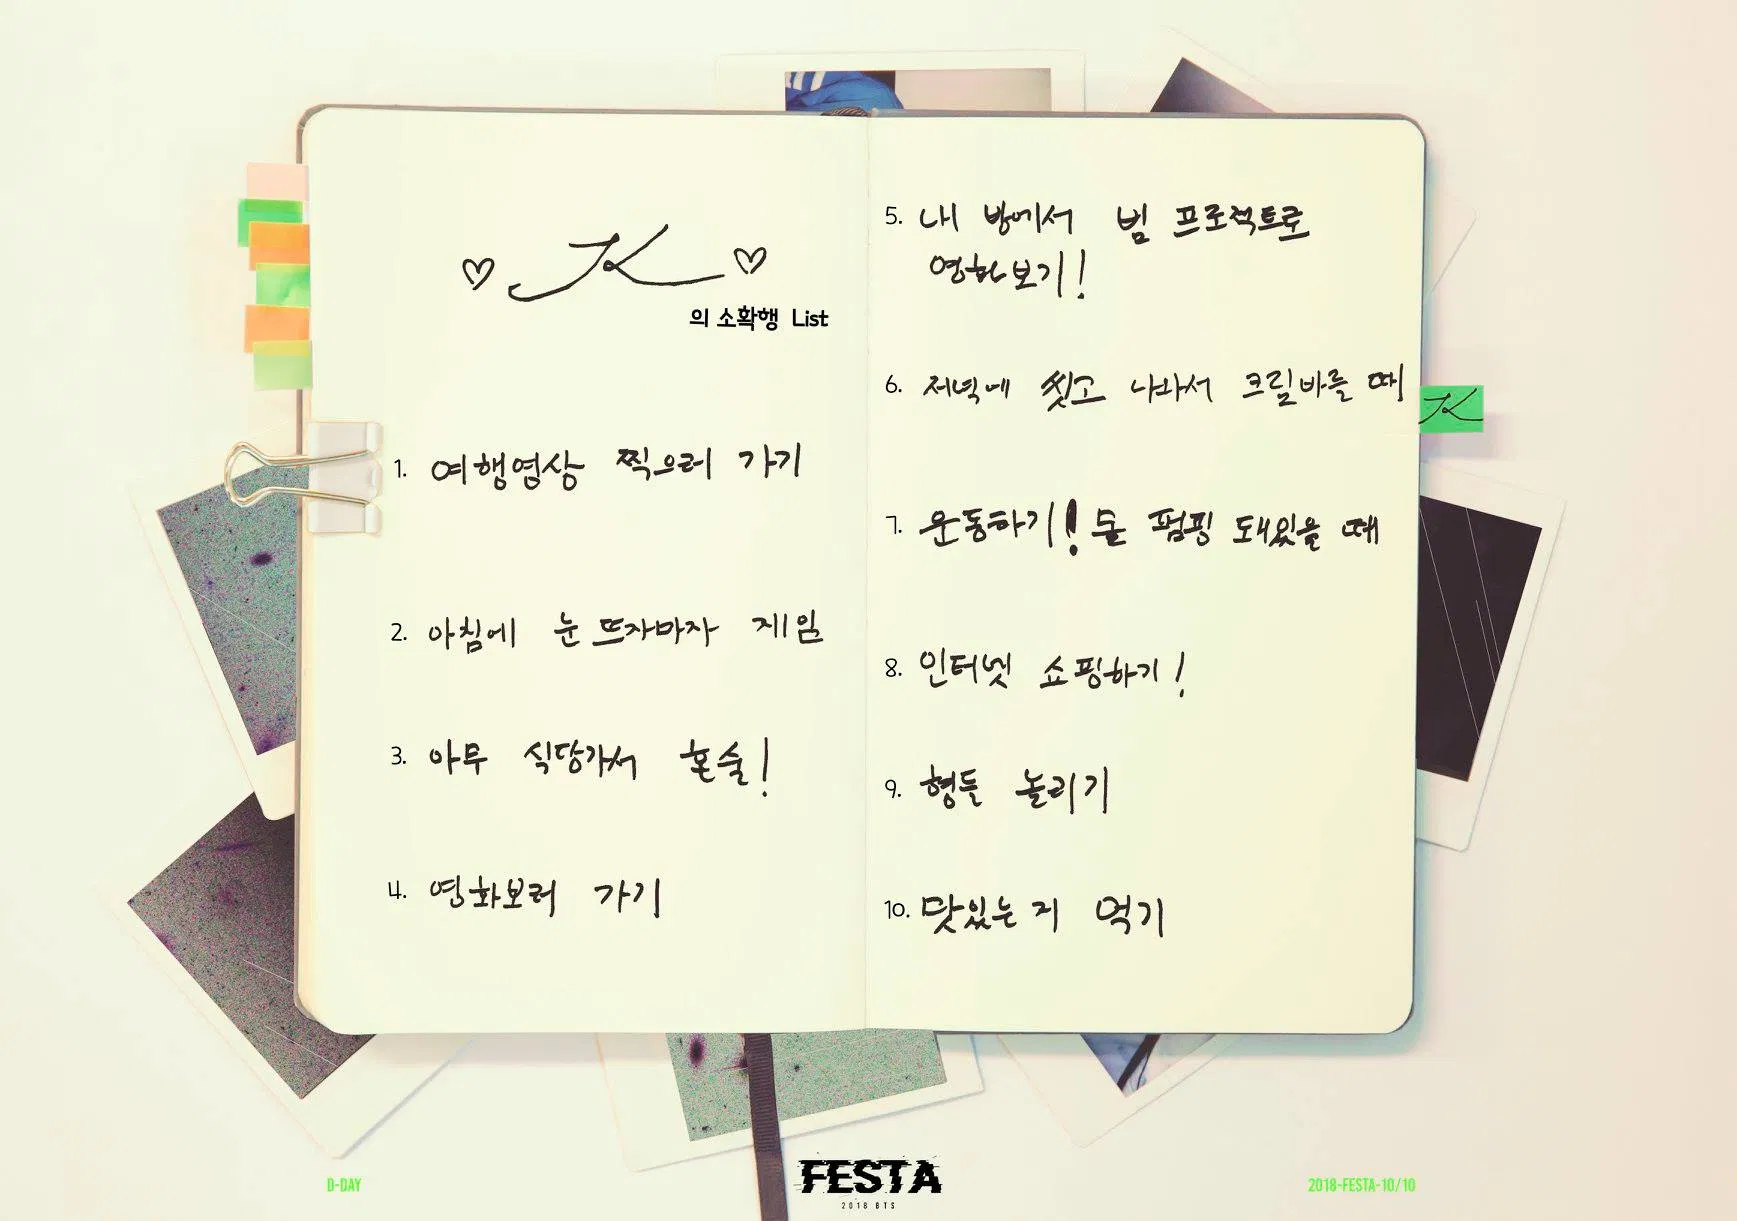 ♡ JK ♡
의 소확행 List
1. 여행영상 찍으러 가기
2. 아침에 눈 뜨자마자 게임
3. 아무 식당가서 혼술!
4. 영화보러 가기
5. 내 방에서 빔 프로젝트로
영화보기!
6. 저녁에 씻고 나와서 크림바를 때
JK
7. 운동하기! 몸 펌핑 돼있을 때
8. 인터넷 쇼핑하기!
9. 형들 놀리기
10. 맛있는 거 먹기
D-DAY
FESTA
2018 BTS
2018-FESTA-10/10